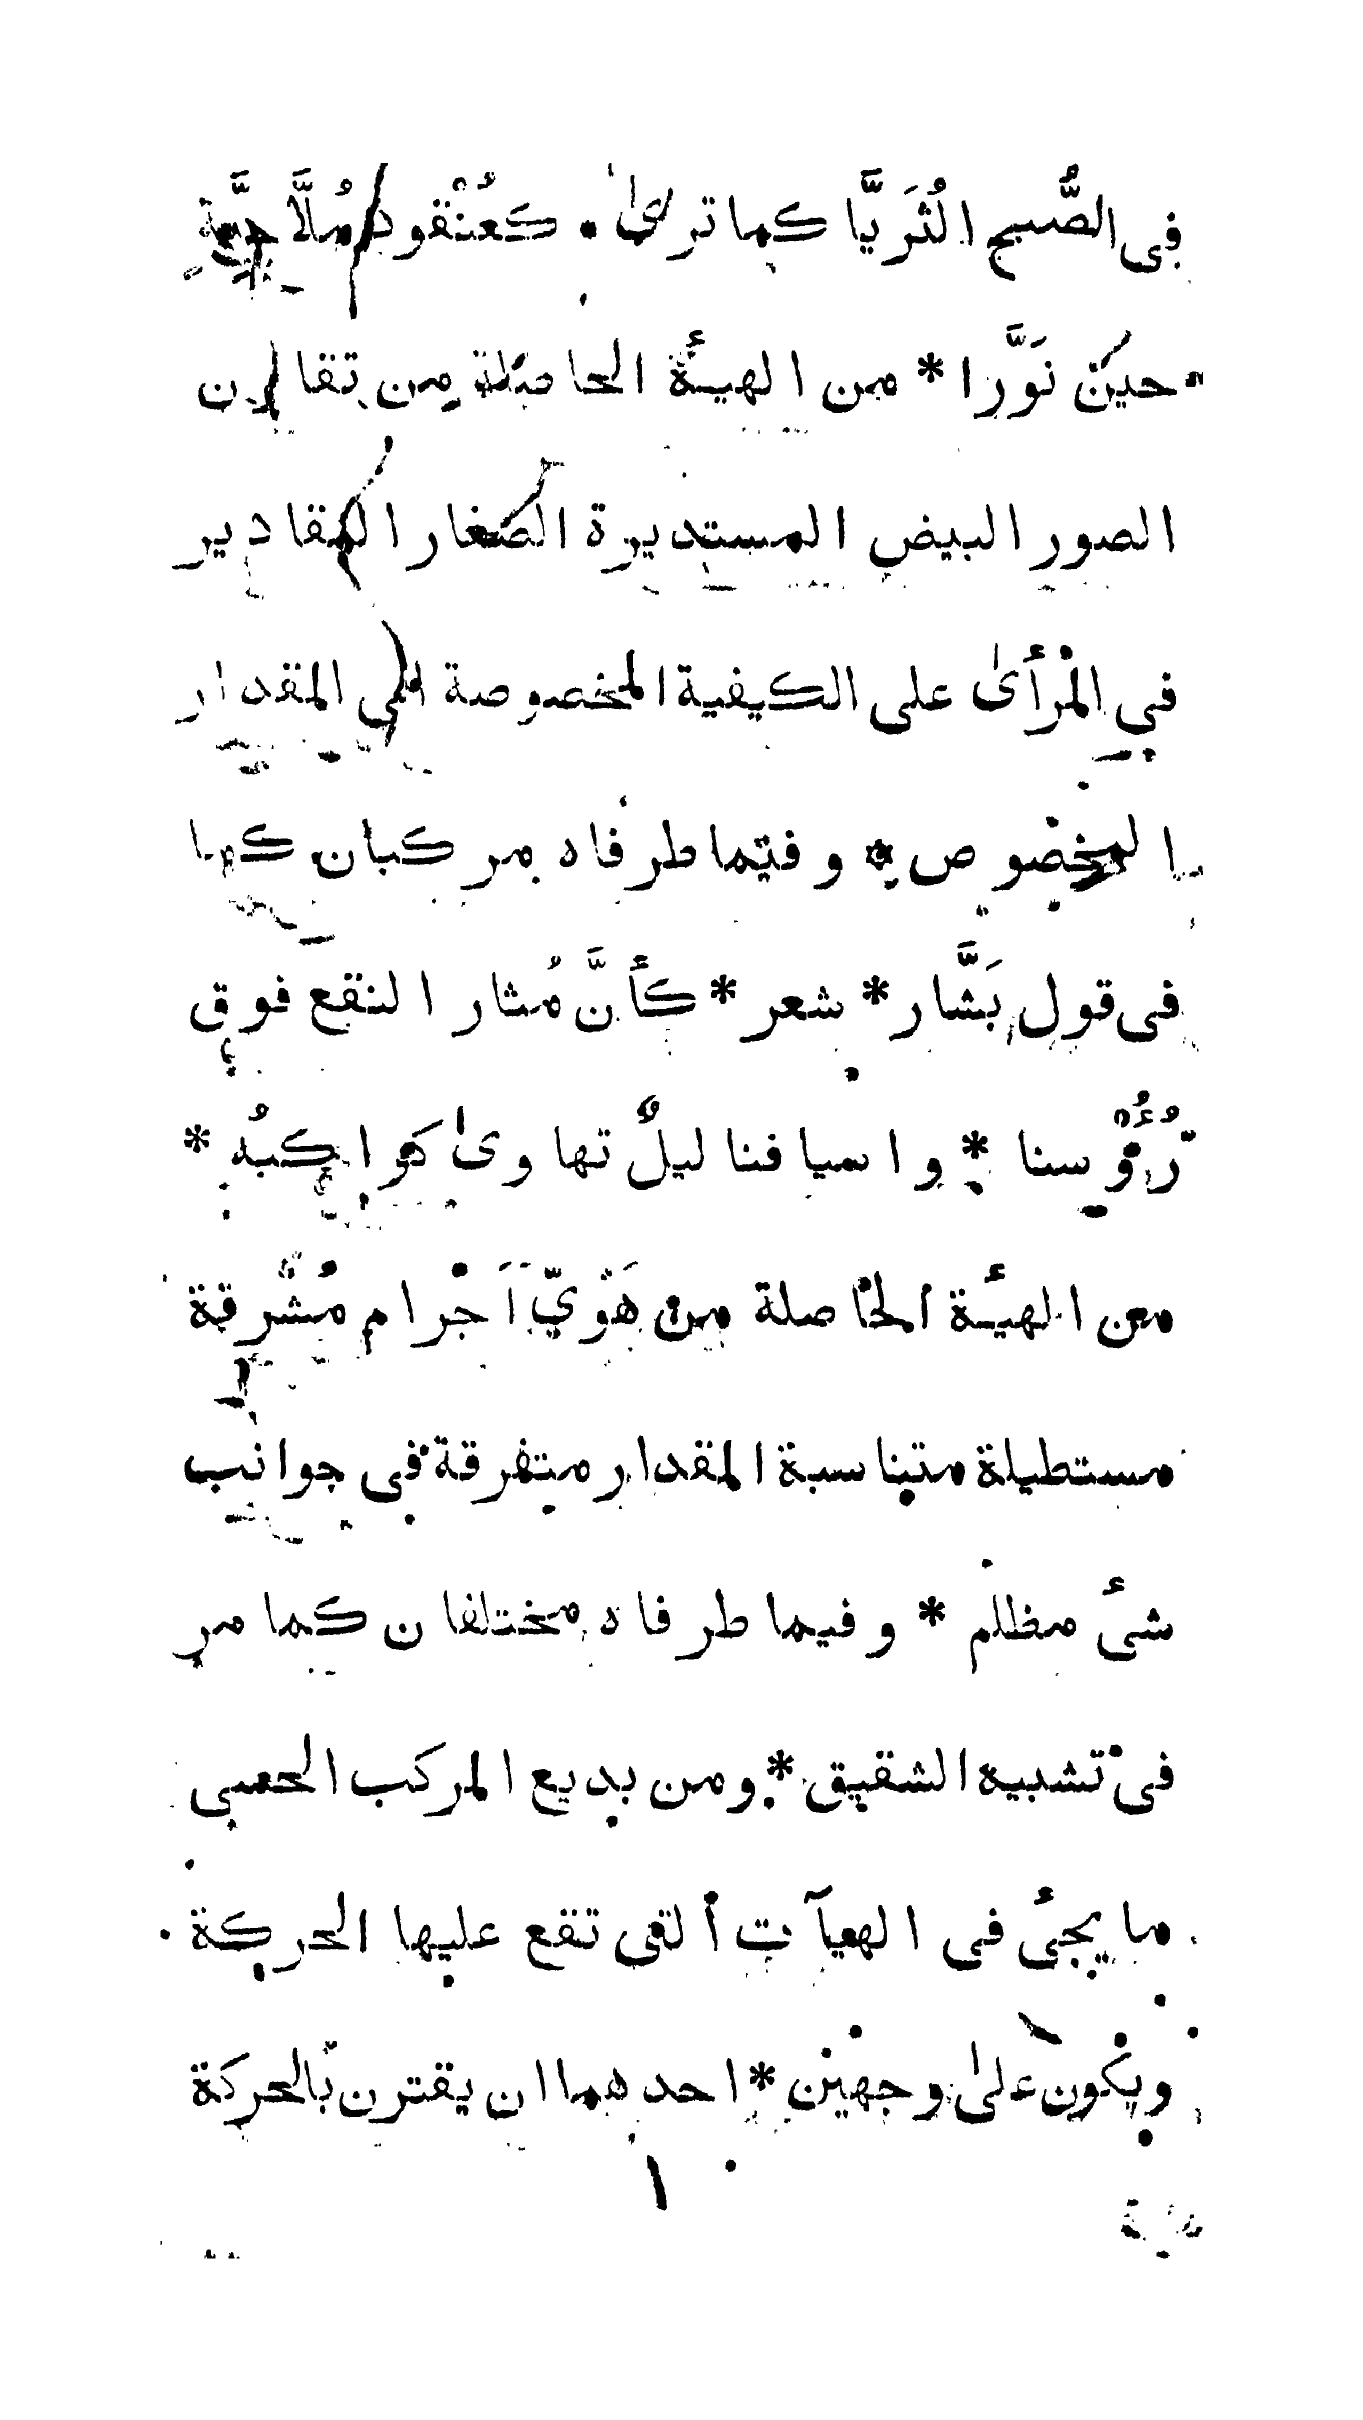 فى الصُّبح الثُرَيَّا كما ترىٰ • كعُنْقود مُلَّاحِيَّة
حين نَوَّرا * من الهيئة الحاصلة من تقارن
الصور البيض المستديرة الصغار المقادير
في المْرأىٰ على الكيفية المخصوصة الى المقدار
المخصوص * وفيما طرفاه مركبان كما
فى قول بَشَّار * شعر * كأنَّ مُثار النقع فوق
رُءُوْسنا * واسيافنا ليلٌ تهاوىٰ كواكبُه *
من الهيئة الحاصلة من هَوْيِّ اَجْرام مُشْرقة
مستطيلة متناسبة المقدار متفرقة فى جوانب
شئ مظلم * وفيما طرفاه مختلفان كما مر
فى تشبيه الشقيق * ومن بديع المركب الحسى
ما يجئ فى الهيآت التى تقع عليها الحركة
ويكون علىٰ وجهين * احدهما ان يقترن بالحركة